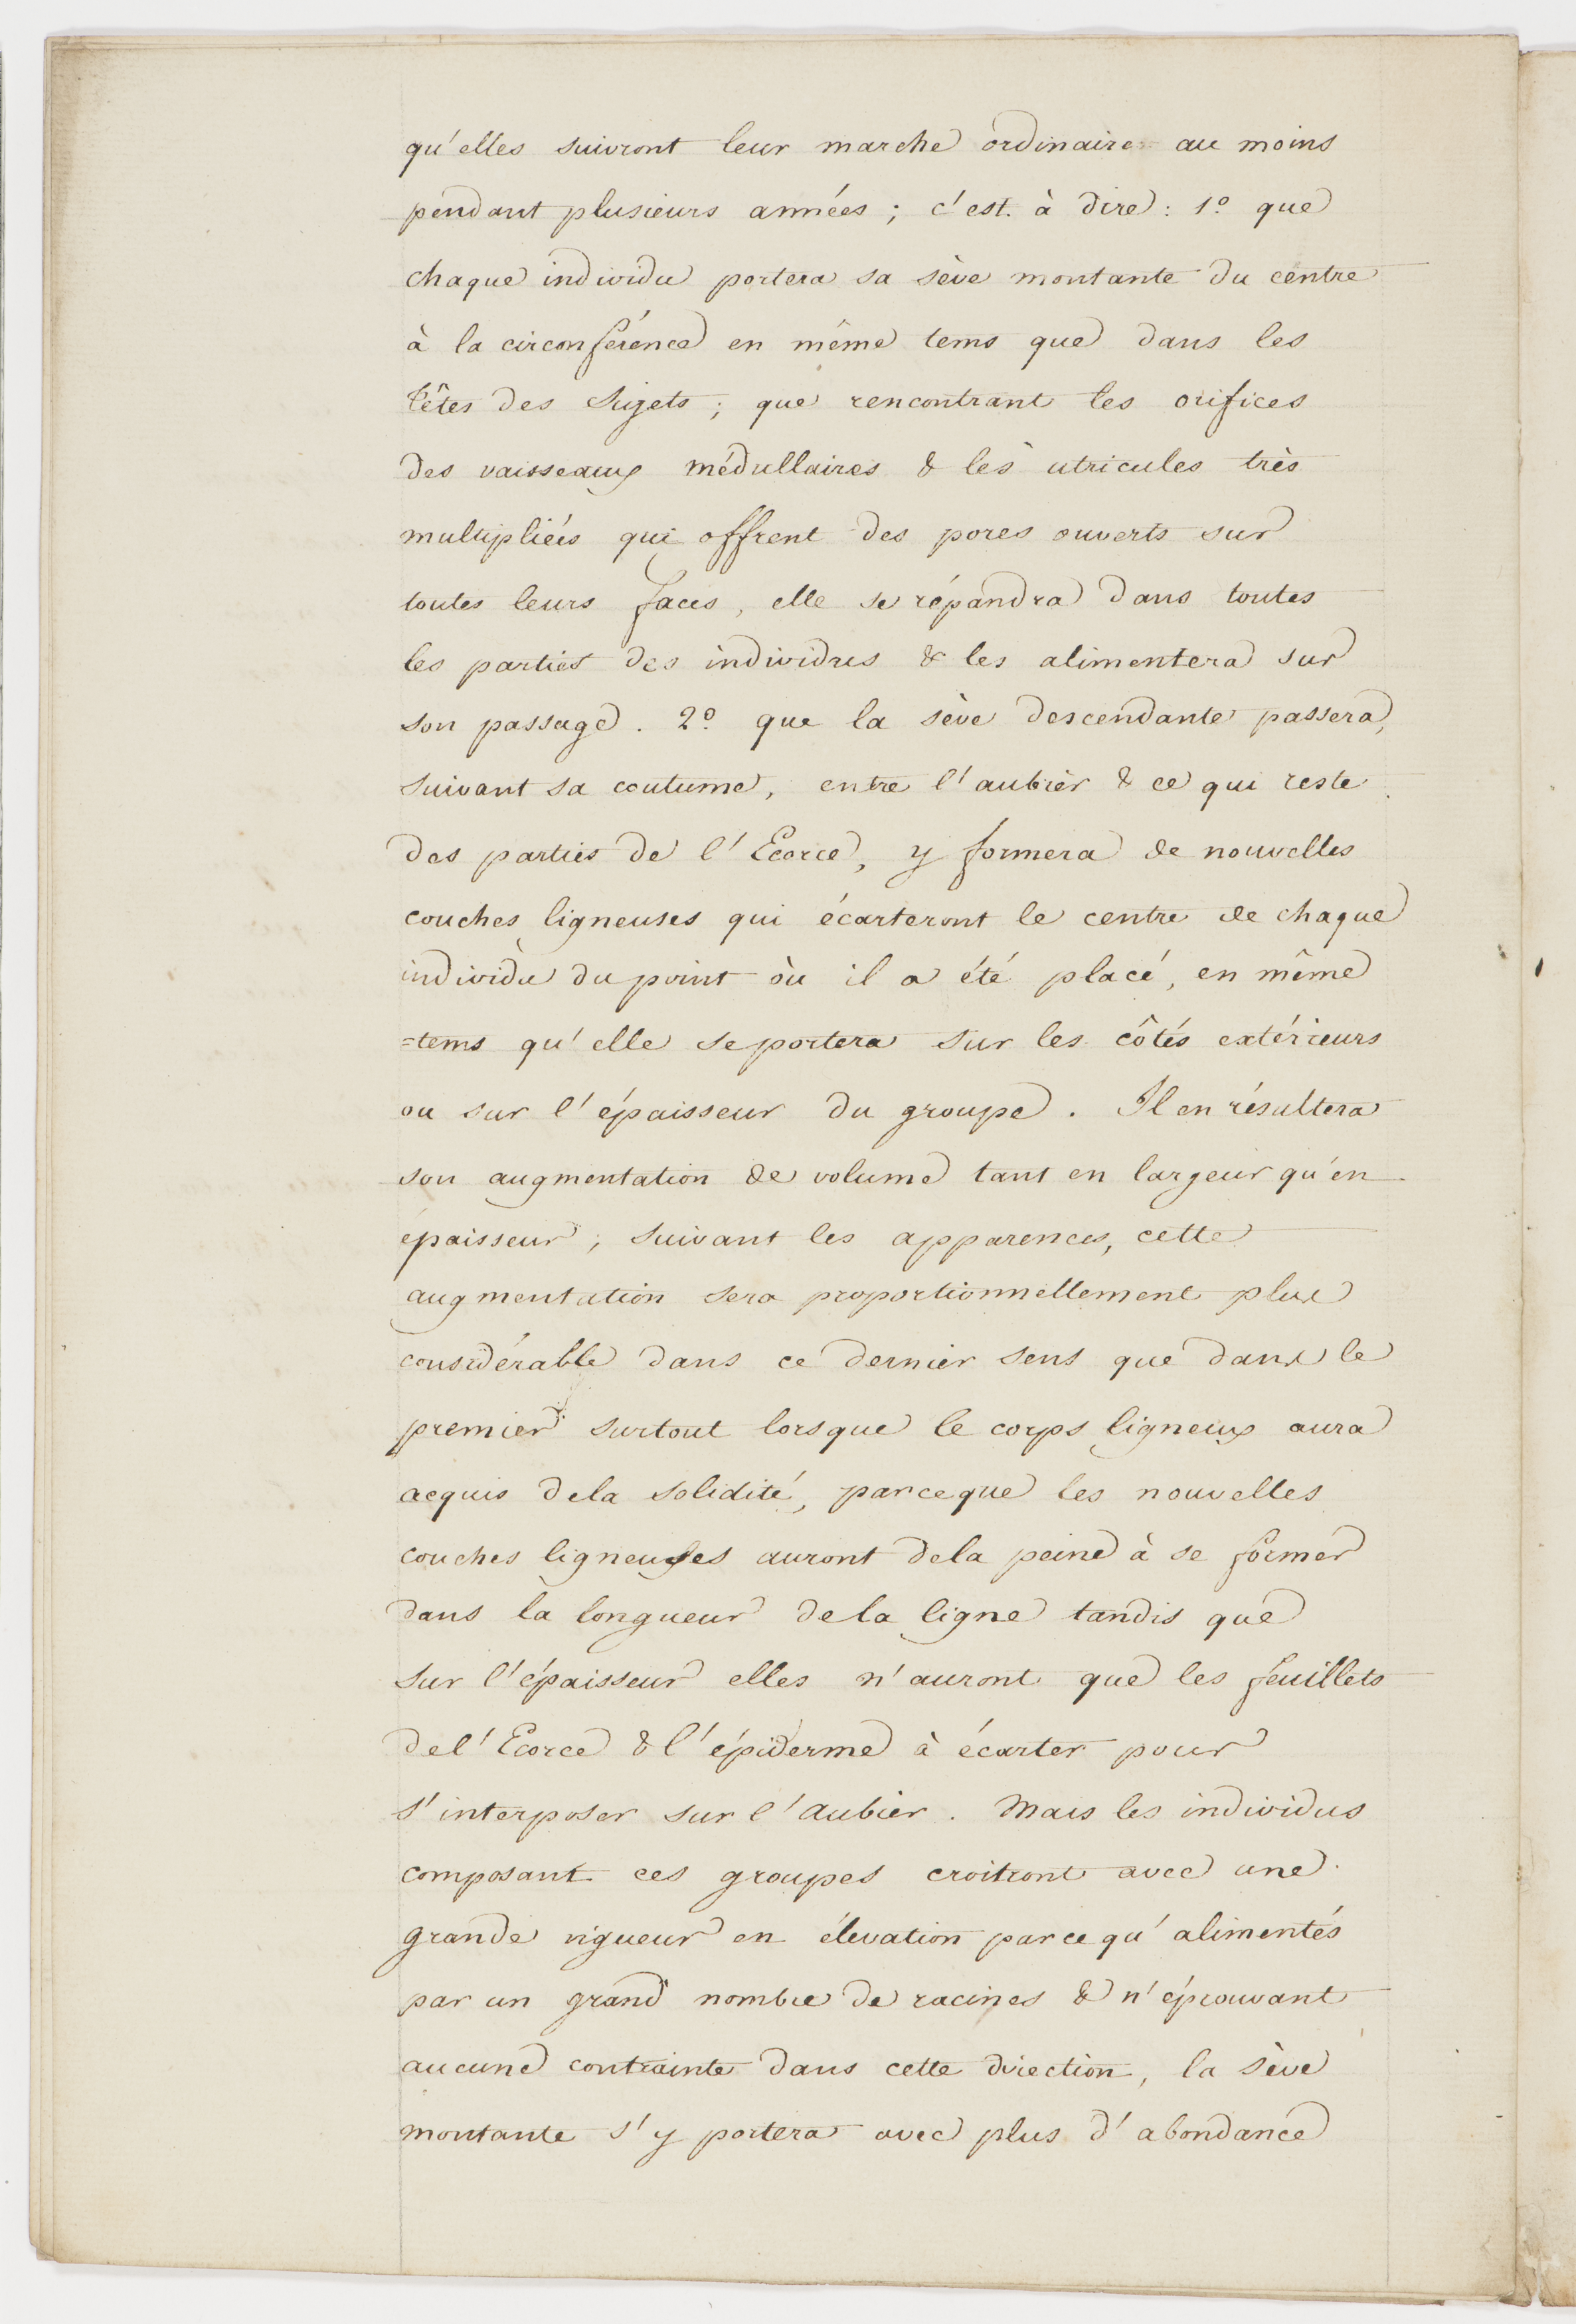 qu'elles suivront leur marche ordinaire au moins
pendant plusieurs années ; c'est. à dire : 1º que
chaque individu portera sa sève montante du centre
à la circonférence en même tems que dans les
têtes des Sujets ; que rencontrant les orifices
des vaisseaux médullaires & les utricules très
multipliées qui offrent des pores ouverts sur
toutes leurs faces, elle se répandra dans toutes
les parties des individus & les alimentera sur
son passage . 2º que la sève descendante passera,
suivant sa coutume, entre l'aubier & ce qui reste
des parties de l'Ecorce, y formera de nouvelles
couches ligneuses qui écarteront le centre de chaque
individu du point où il a été placé, en même
=tems qu'elle se portera sur les côtés extérieurs
ou sur l'épaisseur du groupe . Il en résultera
son augmentation de volume tant en largeur qu'en
épaisseur ; suivant les apparences, cette
augmentation sera proportionnellement plus
considérable dans ce dernier sens que dans le
premier surtout lorsque le corps ligneux aura
acquis dela solidité, parceque les nouvelles
couches ligneuses auront dela peine à se former
dans la longueur dela ligne tandis que
sur l'épaisseur elles n'auront que les feuillets
del'Ecorce & l'épiderme à écarter pour
s'interposer sur l'aubier . Mais les individus
composant ces groupes croitront avec une
grande vigueur en élevation parcequ'alimentés
par un grand nombre de racines & n'éprouvant
aucune contrainte dans cette direction, la sève
montante s'y portera avec plus d'abondance